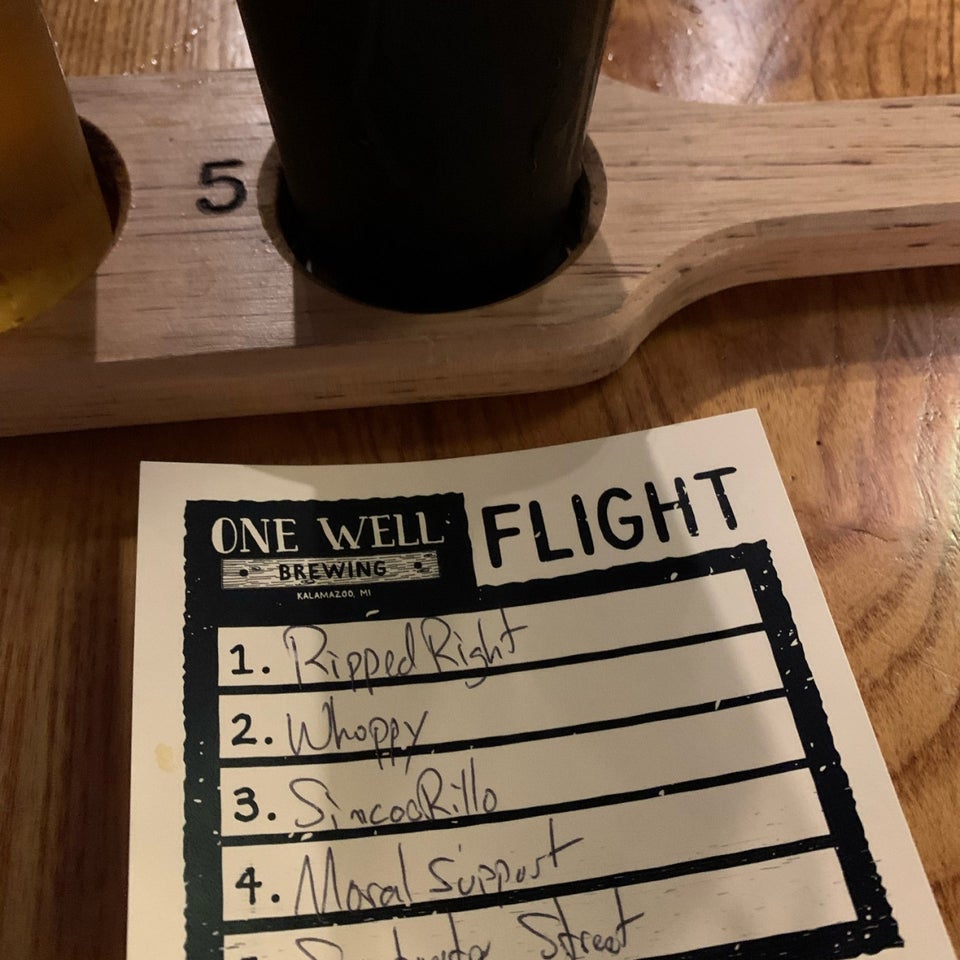 5
ONE WELL
BREWING
KALAMAZOO, MI
FLIGHT
1. Ripped Right
2. Whoppy
3. SincocRillo
4. Moral Support
Street